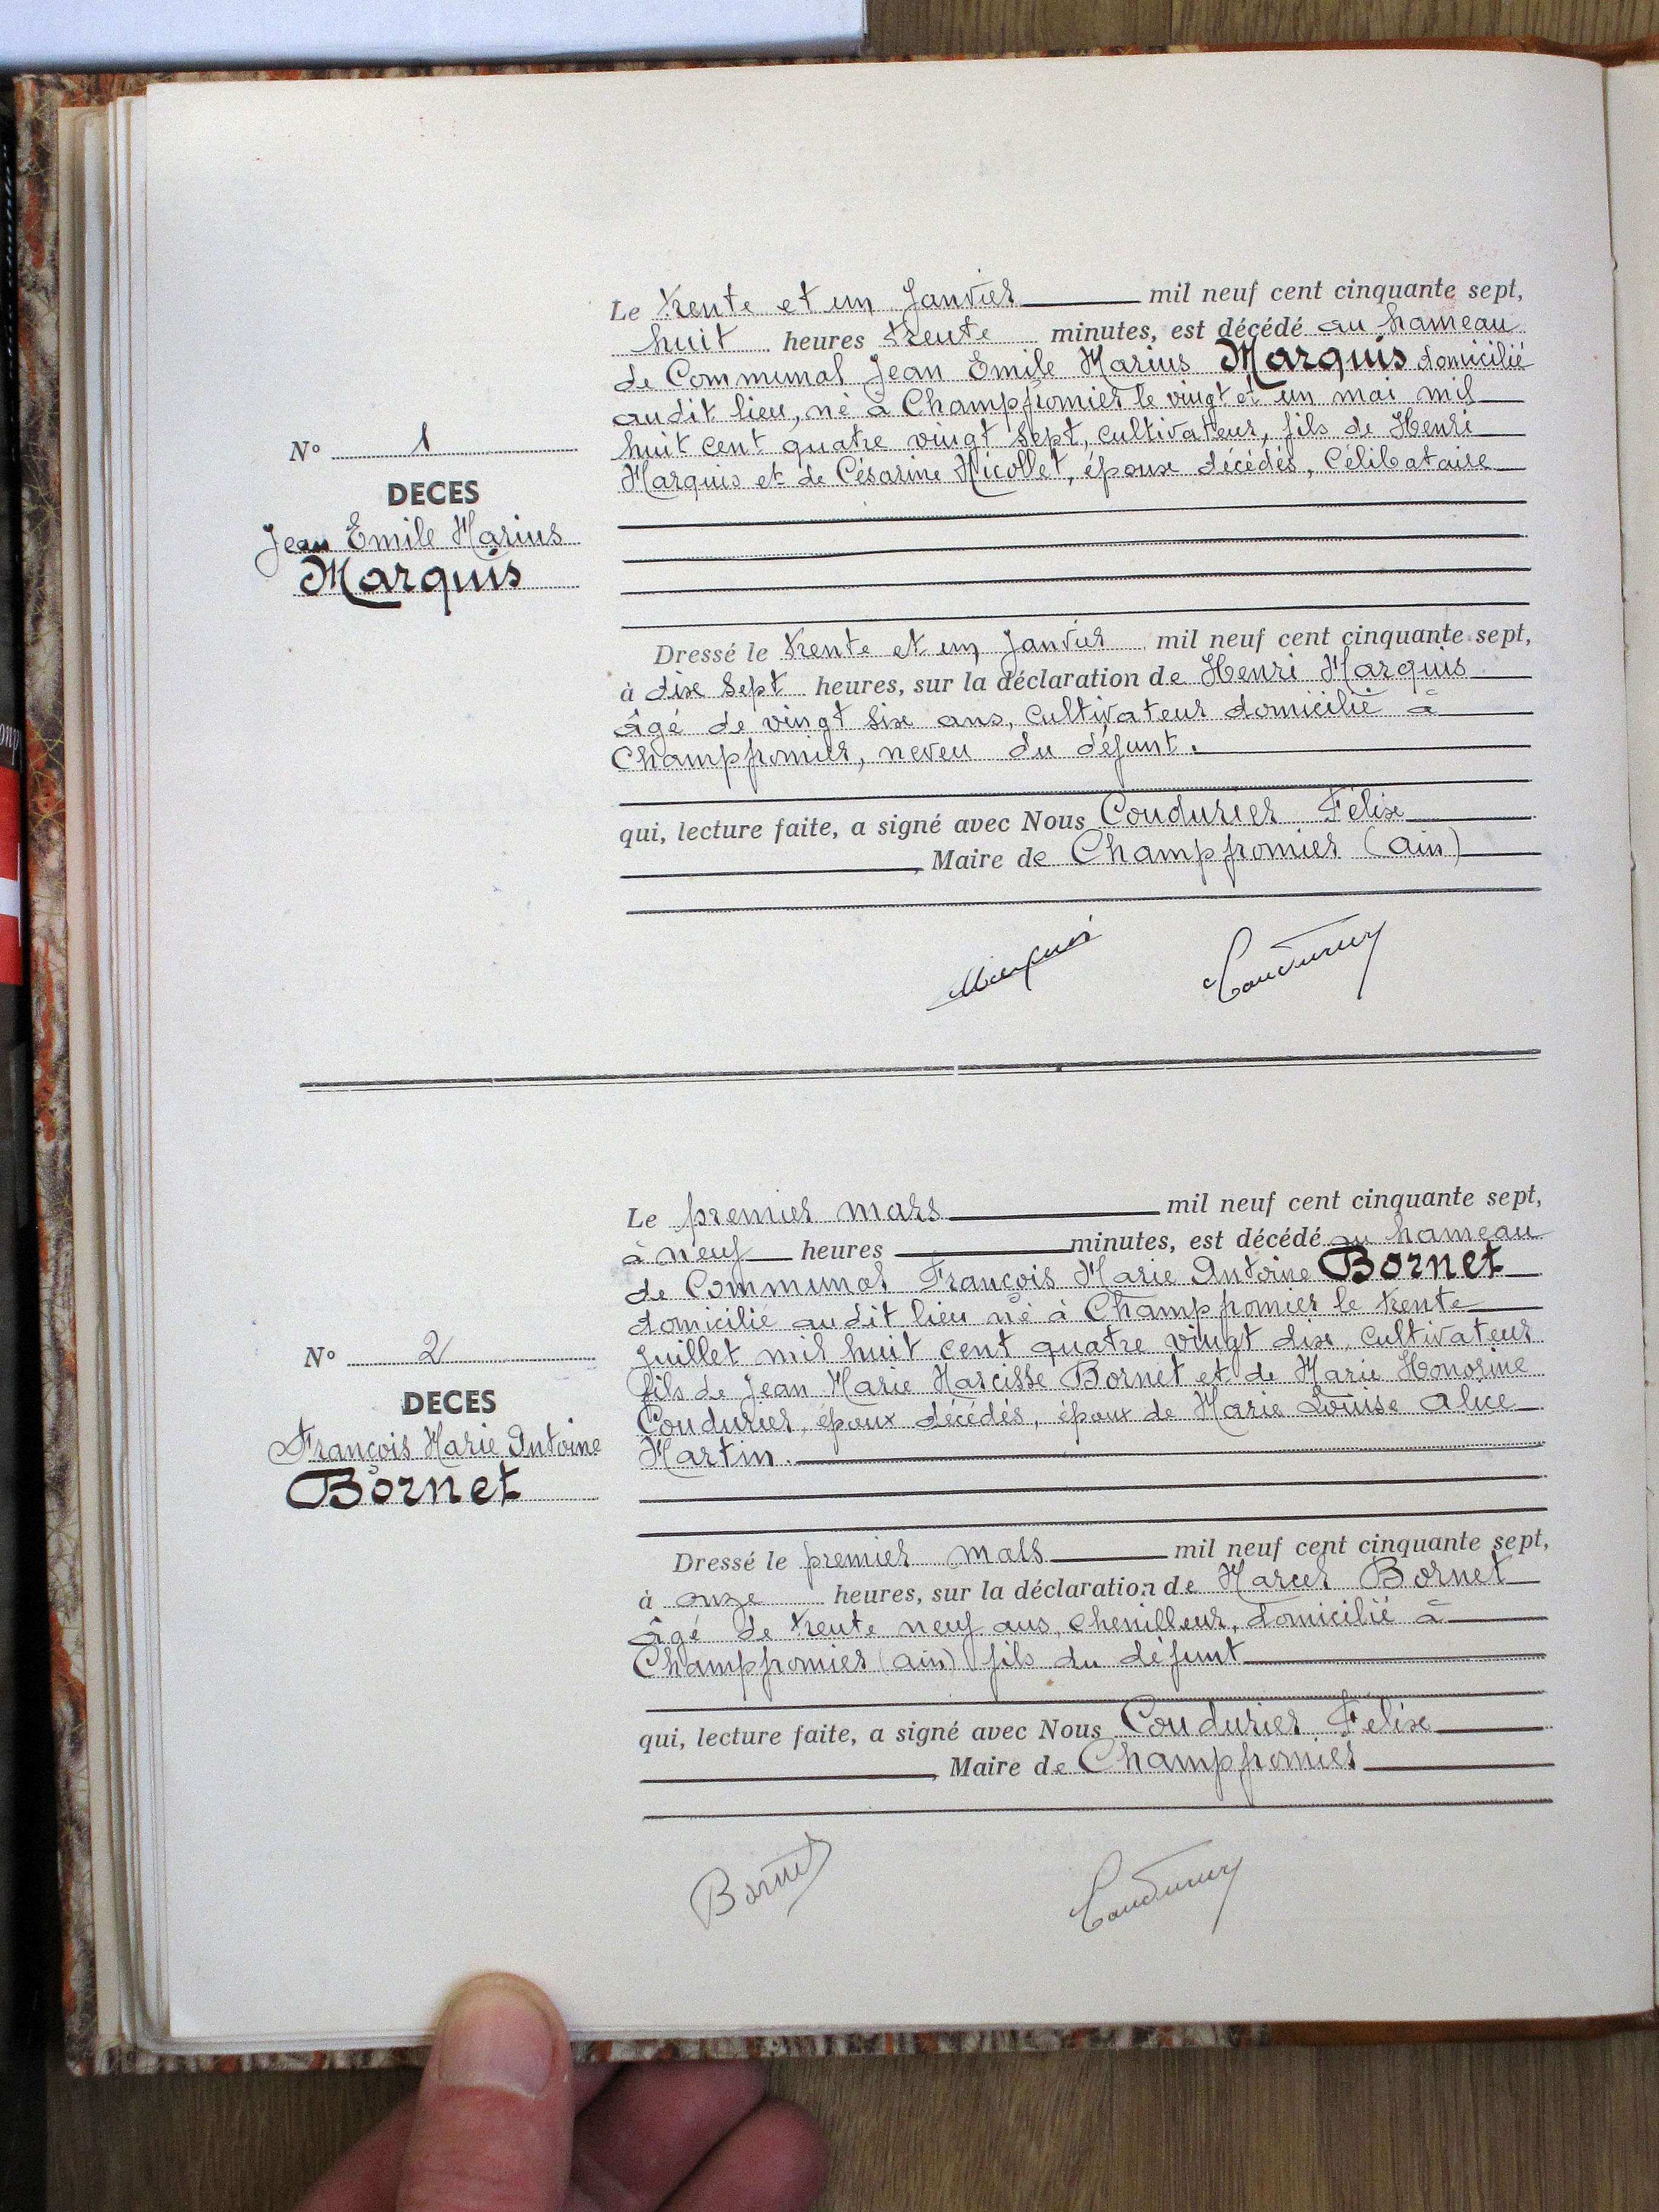 Le trente et un Janvier mil neuf cent cinquante sept,
huit heures trente minutes, est décédé au hameau
de Communal Jean Emile Marius Marquis domicilié
audit lieu, né à Champfromier le vingt et un mai mil
huit cent quatre vingt sept, cultivateur, fils de Henri
Marquis et de Césarine Nicollet, époux décédés, Célibataire
N° 1
DECES
Jean Emile Marius
Marquis
Dressé le trente et un Janvier mil neuf cent cinquante sept,
à dix sept heures, sur la déclaration de Henri Marquis
âgé de vingt six ans, cultivateur domicilié à
Champfromier, neveu du défunt.
qui, lecture faite, a signé avec Nous Coudurier Félix
Maire de Champfromier (ain)
Marquis Coudurier
Le premier mars mil neuf cent cinquante sept,
à neuf heures minutes, est décédé au hameau
de Communal François Marie Antoine Bornet
domicilié audit lieu né à Champfromier le trente
Juillet mil huit cent quatre vingt dix, cultivateur
fils de Jean Marie Narcisse Bornet et de Marie Honorine
Coudurier, époux décédés, époux de Marie Louise Alice
Martin.
N° 2
DECES
François Marie Antoine
Bornet
Dressé le premier mars mil neuf cent cinquante sept,
à onze heures, sur la déclaration de Marcel Bornet
âgé de trente neuf ans, chenilleur, domicilié à
Champfromier (ain) fils du défunt
qui, lecture faite, a signé avec Nous Coudurier Felix
Maire de Champfromier
Bornet Coudurier